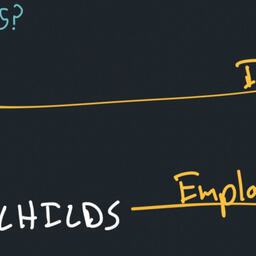 S?
I
CHILDS Emplo